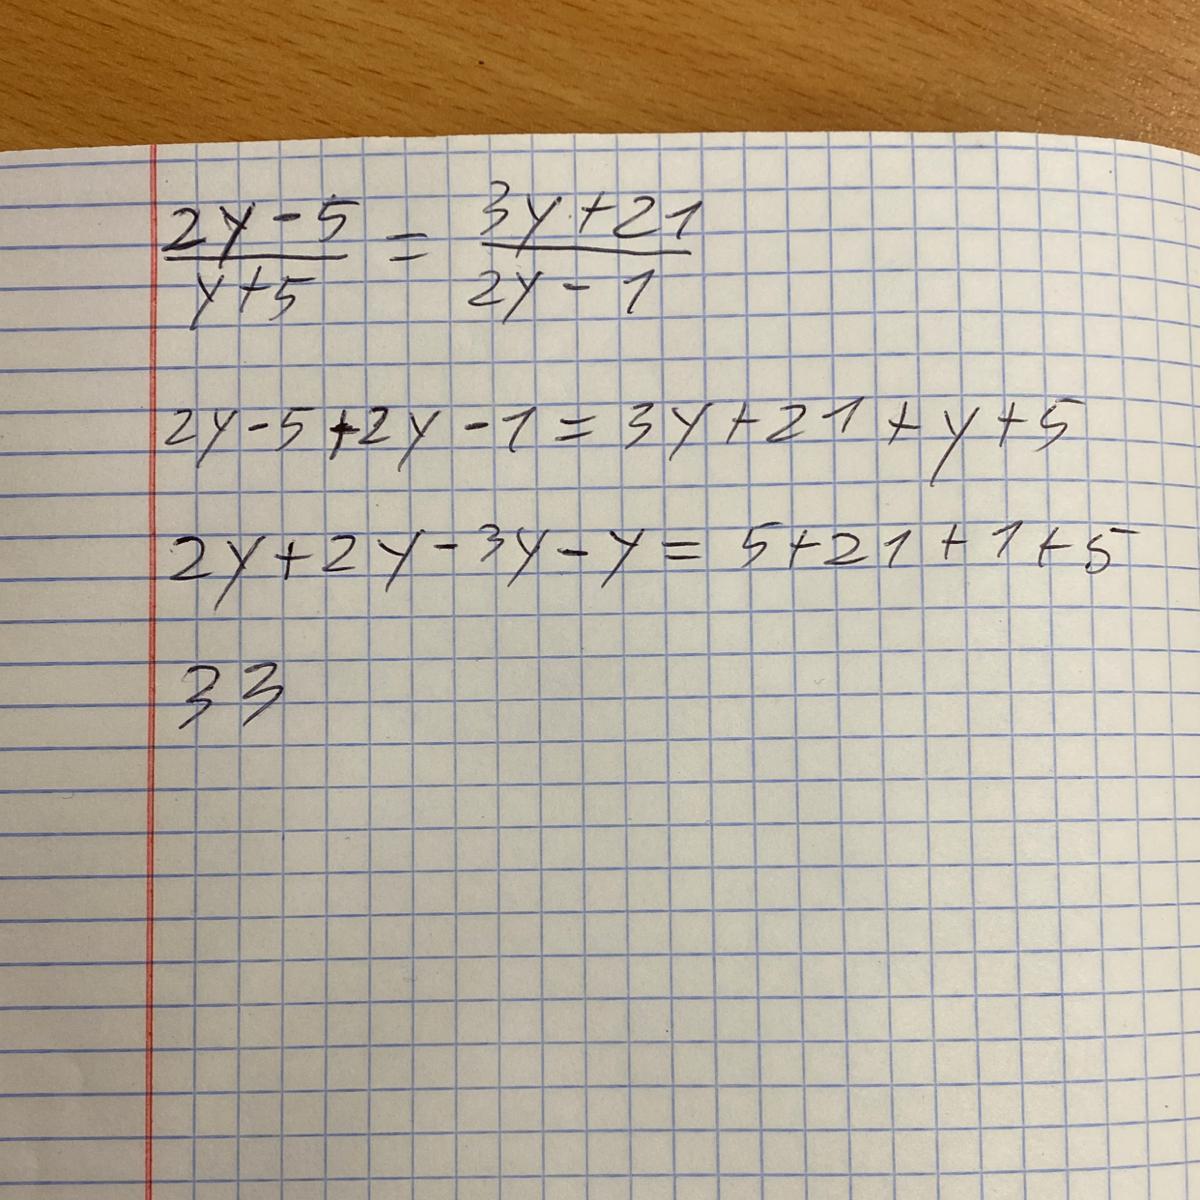 2y-5/y+5 = 3y+21/2y-1
2y-5+2y-1=3y+21+y+5
2y+2y-3y-y=5+21+1+5
33